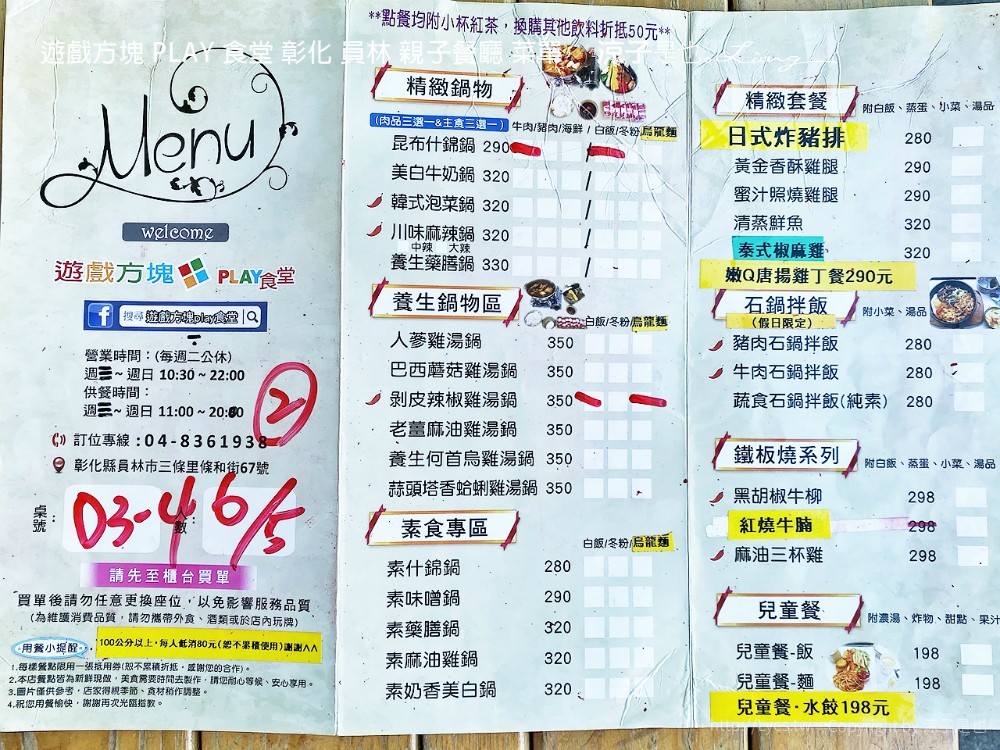 遊戲方塊 PLAY 食堂 彰化 員林 親子餐廳 菜單
Menu
welcome
遊戲方塊 PLAY食堂
搜尋 遊戲方塊play食堂
營業時間：(每週二公休)
週三~週日 10:30~22:00
供餐時間：
週三~週日 11:00~20:00
2
訂位專線：04-8361938
彰化縣員林市三條里條和街67號
桌號：
D3-4
人數：
6/5
請先至櫃台買單
買單後請勿任意更換座位，以免影響服務品質
(為維護消費品質，請勿攜帶外食、酒類或於店內玩牌)
用餐小提醒
100公分以上，每人低消80元(恕不累積使用)謝謝^^
1.每樣餐點限用一張抵用券(恕不累積折抵，感謝您的合作)。
2.本店餐點皆為新鮮現做，美食需要時間去製作，請您耐心等候、安心享用。
3.圖片僅供參考，店家得視季節、食材稍作調整。
4.祝您用餐愉快，謝謝再次光臨指教。
**點餐均附小杯紅茶，換購其他飲料折抵50元**
精緻鍋物
(肉品三選一&主食三選一) 牛肉/豬肉/海鮮 / 白飯/冬粉/烏龍麵
昆布什錦鍋 290
美白牛奶鍋 320
韓式泡菜鍋 320
川味麻辣鍋 320
中辣 大辣
養生藥膳鍋 330
養生鍋物區
白飯/冬粉/烏龍麵
人蔘雞湯鍋 350
巴西蘑菇雞湯鍋 350
剝皮辣椒雞湯鍋 350
老薑麻油雞湯鍋 350
養生何首烏雞湯鍋 350
蒜頭塔香蛤蜊雞湯鍋 350
素食專區
白飯/冬粉/烏龍麵
素什錦鍋 280
素味噌鍋 290
素藥膳鍋 320
素麻油雞鍋 320
素奶香美白鍋 320
精緻套餐
附白飯、蒸蛋、小菜、湯品
日式炸豬排 280
黃金香酥雞腿 290
蜜汁照燒雞腿 290
清蒸鮮魚 320
泰式椒麻雞 320
嫩Q唐揚雞丁餐290元
石鍋拌飯
(假日限定)
附小菜、湯品
豬肉石鍋拌飯 280
牛肉石鍋拌飯 280
蔬食石鍋拌飯(純素) 280
鐵板燒系列
附白飯、蒸蛋、小菜、湯品
黑胡椒牛柳 298
紅燒牛腩 298
麻油三杯雞 298
兒童餐
附濃湯、炸物、甜點、果汁
兒童餐-飯 198
兒童餐-麵 198
兒童餐·水餃198元